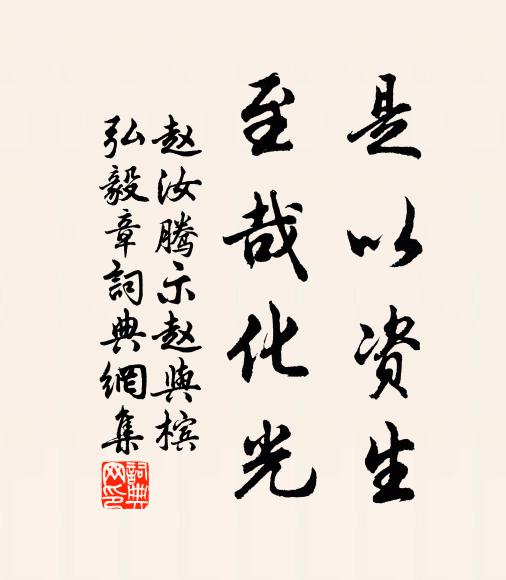 是以资生
至哉化光
赵汝腾示赵與槟
弘毅章詞典網集
詞典网印